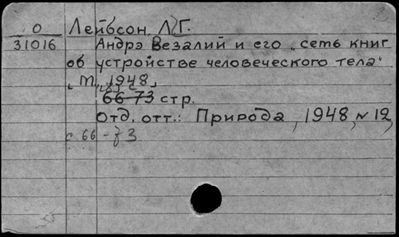 О
31016
Лейбсон, Л.Г.
Андрэ Везалий и его „сеть книг
об устройстве человеческого тела“
М., 1948,
66-73 стр.
Отд. отт.: Природа, 1948, № 12,
с 66-73